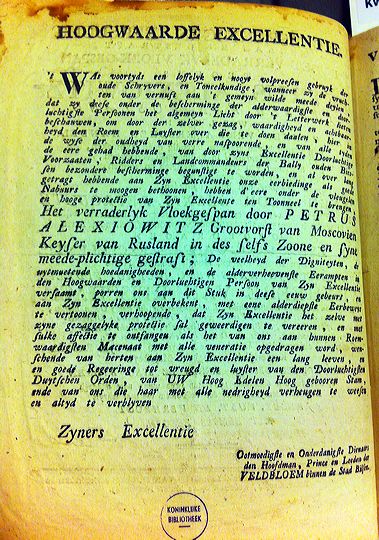 HOOGWAARDE EXCELLENTIE.
't WAs voortyds een loffelyk en nooyt volpresen gebruyk der
oude Schryvers, en Toneelkundige, wanneer zy de vruch-
ten van vernuft aan 't gemeyn wilde mede deylen,
dat zy deese onder de bescherminge der alderwaardigste en door-
luchtigste Persoonen het algemeyn Licht door 't Letterwerk lieten
beschouwen, om door der zelver gezag, waardigheyd en achtbaar-
heyd den Roem en Luyster over die te doen daalen, hier van
de wyse der oudheyd van verre naspoorende, en van over lang
de eere gehad hebbende, van door zyne Excellentie Doorluchtige
Voorzaaten, Ridders en Landcommandeurs der Bally ouden Bies-
sen bezondere bescherminge begunstigt te worden, en al over lang
getragt hebbende aan Zyn Excellentie onze eerbiedinge als goede
Nabuurs te moogen bethoonen, hebben d'eere onder de vleugelen
en hooge protectie van Zyn Excellentie ten Tonneel te brengen
Het verraderlyk Vloekgespan door PETRUS
ALEXIOWITZ Grootvorst van Moscovien
Keyser van Rusland in des selfs Zoone en syne
meede-plichtige gestraft; De veelheyd der Digniteyten, de
uytmuntende hoedanigheeden, en de alderverhevenste Eerampten in
den Hoogwaarden en Doorluchtigen Persoon van Zyn Excellentie
versaamt, porren ons aan dit Stuk in deese eeuw gebeurt, en
aan Zyn Excellentie overbekent, met eene alderdiepste Eerbewees
te vertoonen, verhoopende, dat Zyn Excellentie het zelve met
zyne gezaggelyke protectie sal geweerdigen te vereeren, en met
sulke affectie te ontfangen als het van ons aan hunnen Roem-
waardigsten Mecenaat met alle veneratie opgedragen word, wen-
schende van herten aan Zyn Excellentie een lang leeven, en
en goede Regeeringe tot vreugd en luyster van den Doorluchtigsten
Duytschen Orden, van UW Hoog Edelen Hoog geboren Stam,
ende van ons die haar met alle nedrigheyd verheugen te weesen
en altyd te verblyven
Zyners Excellentie
Ootmoedigste en Onderdanigste Dienaars
den Hoofdman, Prince en Leeden der
VELDBLOEM binnen de Stad Bilsen.
KONINKLIJKE
BIBLIOTHEEK